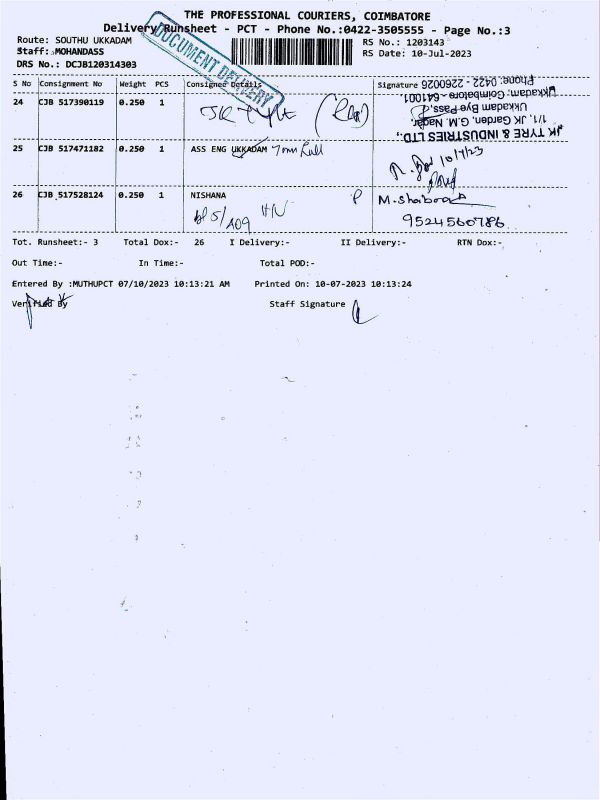 THE PROFESSIONAL COURIERS, COIMBATORE
Delivery Runsheet - PCT - Phone No.:0422-3505555 - Page No.:3
Route: SOUTHU UKKADAM
RS No.: 1203143
Staff: MOHANDASS
RS Date: 10-Jul-2023
DRS No.: DCJB120314303
DOCUMENT DELIVERY
S No Consignment No Weight PCS Consignee Details Signature
24 CJB 517390119 0.250 1 JK Tyre
JK TYRE & INDUSTRIES LTD.,
1/1, JK Garden, G.M. Nagar,
Ukkadam Bye Pass,
Ukkadam, Coimbatore - 641001.
Phone: 0422 - 2260026
25 CJB 517471182 0.250 1 ASS ENG UKKADAM Town
10/7/23
26 CJB 517528124 0.250 1 NISHANA P
M.Shaboora
9524560786
Tot. Runsheet:- 3 Total Dox:- 26 I Delivery:- II Delivery:- RTN Dox:-
Out Time:- In Time:- Total POD:-
Entered By :MUTHUPCT 07/10/2023 10:13:21 AM Printed On: 10-07-2023 10:13:24
Verified By Staff Signature